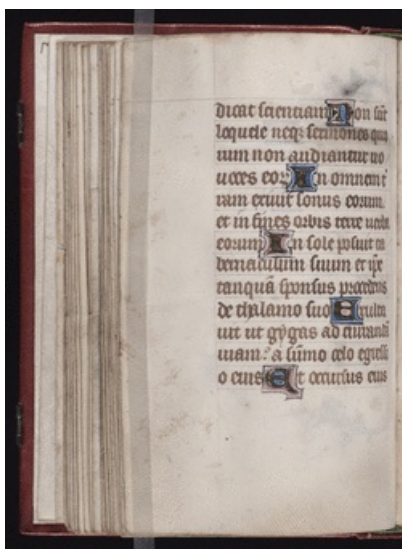 dicat scientiam Non sūt
loquele neqȝ sermones quo
rum non audiantur uo
uces eorꝝ In omnem t͛
ram exiuit sonus eorum
et in fines orbis terre uerba
eorum In sole posuit ta
bernaculum suum et ip̄e
tanquā sponsus procedens
de thalamo suo Exulta
uit ut gygas ad currandā
uiam : a sūmo celo egressi
o eius Et occursus eius